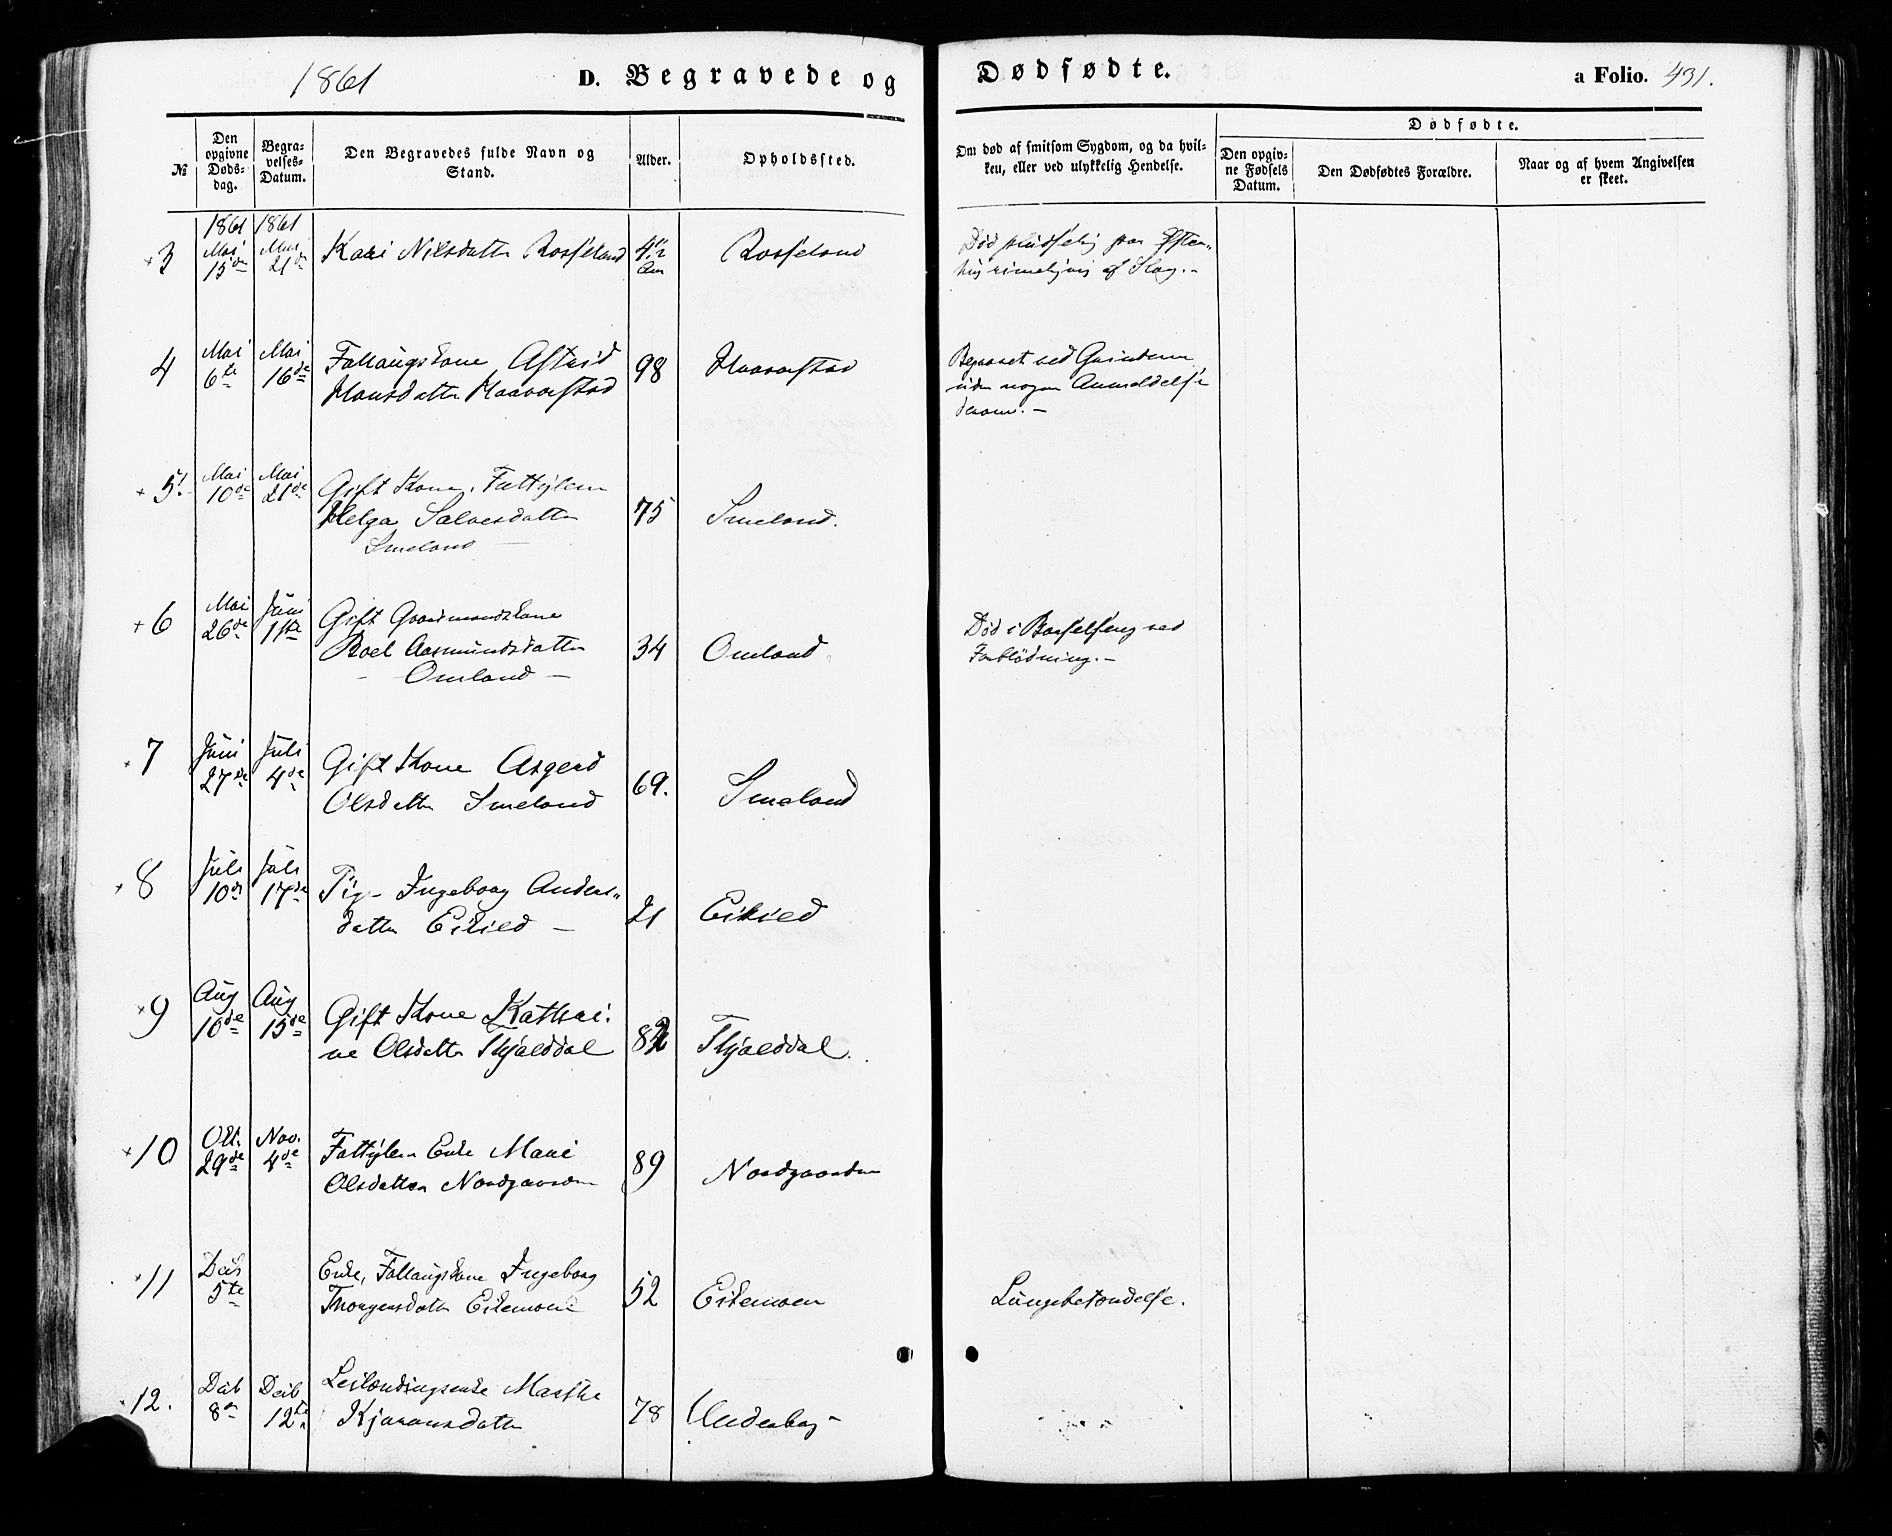 1861
D. Begravede og
Dødfødte.
a Folio. 431.
№
Den opgivne Døds-dag.
Begra-velses-Datum.
Den Begravedes fulde Navn og Stand.
Alder.
Opholdssted.
Om død af smitsom Sygdom, og da hvil-
ken, eller ved ulykkelig Hendelse.
Dødfødte.
Den opgiv-ne Fødsels Datum.
Den Dødfødtes Forældre.
Naar og af hvem Angivelsen er skeet.
1861 1861
+3 Mai 15de Mai 21de Kari Nilsdatter Rosseland Rosseland
Død pludselig
af Slag.-
4 Mai 6te Mai 16de Follaugskone Astrid
Hansdatter Haaverstad 98 Haaverstad
Begravet ved Grindem
uden nogen Anmeldelse
derom. -
+5. Mai 10de Mai 21de Gift Kone, Fattiglem
Helga Salvesdatter 75 Smeland.
Smeland
+6 Mai 26de Juni 1ste Gift Gaardmandskone
Roel Aasmundsdatter 34 Omland
- Omland -
Død i Barselseng ved
Forblødning. -
7 Juni 27de Juli 4de Gift Kone Asgerd
Olsdatter Smeland 69. Smeland
+8 Juli 10de Juli 17de Pige Ingeborg Anders-
datter Eikild - 21 Eikild
+9 Aug 10de Aug 15de Gift Kone Kathri-
ne Olsdatter Skjælddal 82 Skjælddal.
+10 Okt. 29de Nov. 4de Fattiglem Enke Mari
Olsdatter Nordgaarden 89 Nordgaarden
+11 Deb 5te Enke, Follaugskone Ingeborg
Thorgersdatter Eikemoen 52 Eikemoen
Lungebetændelse.
+12. Deb 8de Deb 12te Leilændingsenke Marthe
Kjøstansdatter 78 Underberg -